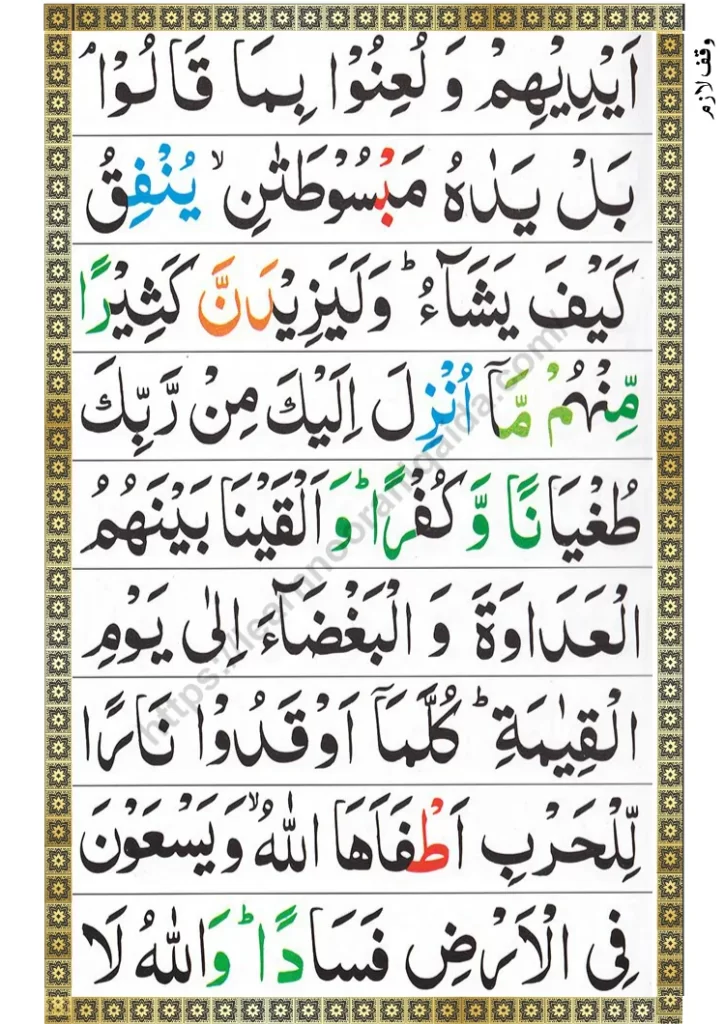 وقف لازم
اَيْدِيْهِمْ وَ لُعِنُوْا بِمَا قَالُوْا ۘ
بَلْ يَدٰهُ مَبْسُوْطَتٰنِ ۙ يُنْفِقُ
كَيْفَ يَشَآءُ ؕ وَلَيَزِيْدَنَّ كَثِيْرًا
مِّنْهُمْ مَّاۤ اُنْزِلَ اِلَيْكَ مِنْ رَّبِّكَ
طُغْيَانًا وَّ كُفْرًا ؕ وَ اَلْقَيْنَا بَيْنَهُمُ
الْعَدَاوَةَ وَ الْبَغْضَآءَ اِلٰى يَوْمِ
الْقِيٰمَةِ ؕ كُلَّمَاۤ اَوْقَدُوْا نَارًا
لِّلْحَرْبِ اَطْفَاَهَا اللّٰهُ ۙ وَيَسْعَوْنَ
فِى الْاَرْضِ فَسَادًا ؕ وَاللّٰهُ لَا
https://learnnooraniqaida.com/